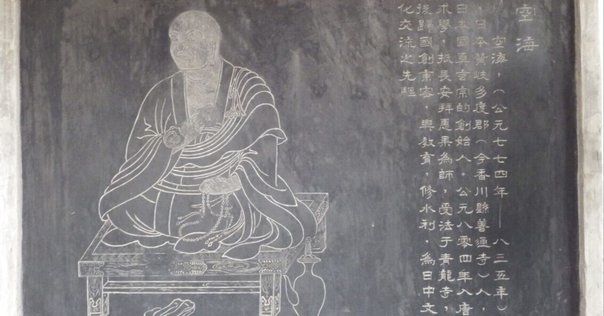 空海
空海，（公元七七四年——八三五年）
，日本贊岐多度郡（今香川縣善通寺）人，
日本國真言宗的創始人。公元八零四年入唐
求學，抵長安拜惠果為師，受法于青龍寺，
後歸國創書容，興教育，修水利，為日中文
化交流之先驅